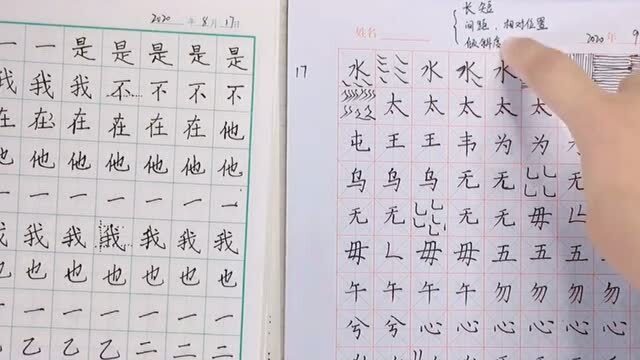 2020 年 8 月 17 日
一 一 是 是 是 是 是
我 我 我 不 不 不 不
在 在 在 在 在 在 他
他 他 他 他 他 他 他
一 一 一 一 一 一 一
我 我 我 我 我 我 我
也 也 也 也 也 也 也
一 一 一 一 一 一 一
乙 乙 乙 乙 二 二 二
长短
间距、相对位置
倾斜度
姓名
2020 年 9
17
水 水 水 水
太 太 太 太 太
屯 王 王 韦 为 为
鸟 鸟 鸟 无 无 无
无 无 无 无 毋
毋 毋 毋 五 五 五
午 午 午 午 勿 勿 勿
兮 兮 心 心 心 心 心